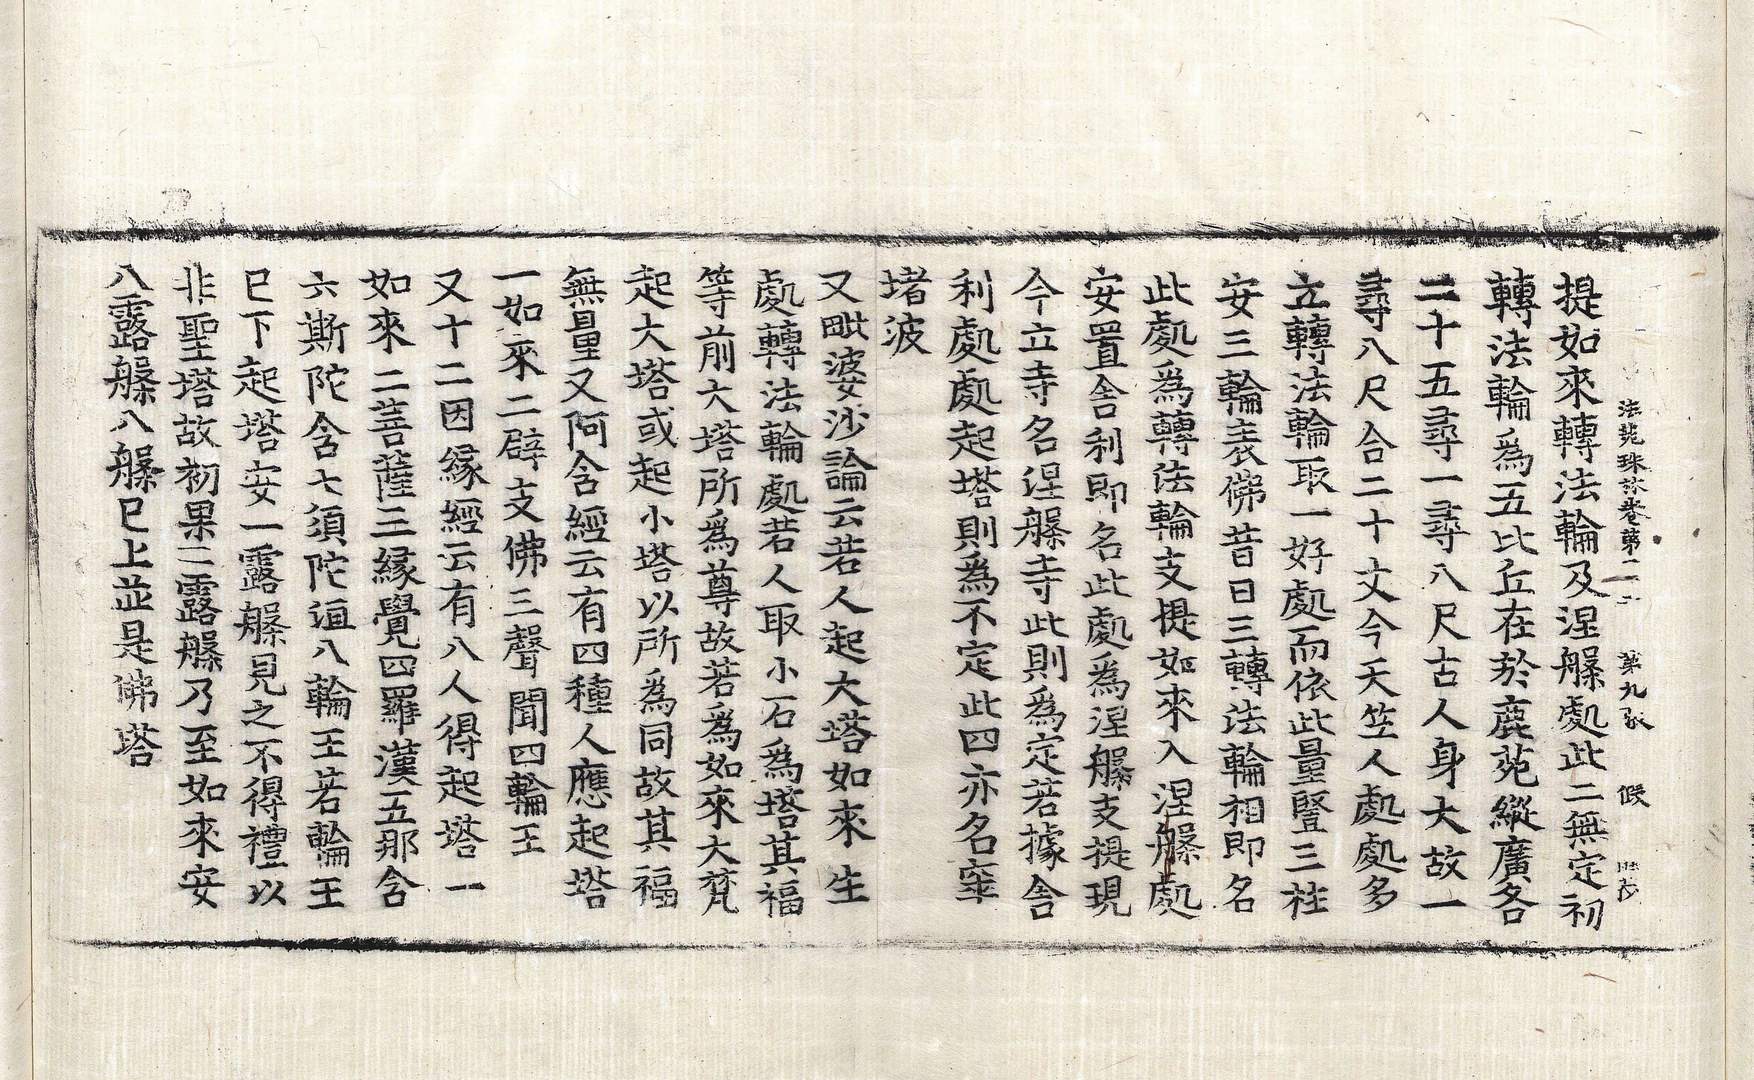 法苑珠林卷第二十 第九張 假
提如來轉法輪及涅槃處此二無定初
轉法輪爲五比丘在於鹿苑縱廣各
二十五尋一尋八尺古人身大故一
尋八尺合二十丈今天竺人處處多
立轉法輪取一好處而依此量竪三柱
安三輪表佛昔日三轉法輪相即名
此處爲轉法輪支提如來入涅槃處
安置舍利即名此處爲涅槃支提現
今立寺名涅槃寺此則爲定若據舍
利處處起塔則爲不定此四亦名窣
堵波
又毗婆沙論云若人起大塔如來生
處轉法輪處若人取小石爲塔其福
等前大塔所爲尊故若爲如來大梵
起大塔或起小塔以所爲同故其福
無量又阿含經云有四種人應起塔
一如來二辟支佛三聲聞四輪王
又十二因緣經云有八人得起塔一
如來二菩薩三緣覺四羅漢五那含
六斯陀含七須陀洹八輪王若輪王
已下起塔安一露槃見之不得禮以
非聖塔故初果二露槃乃至如來安
八露槃八槃已上並是佛塔